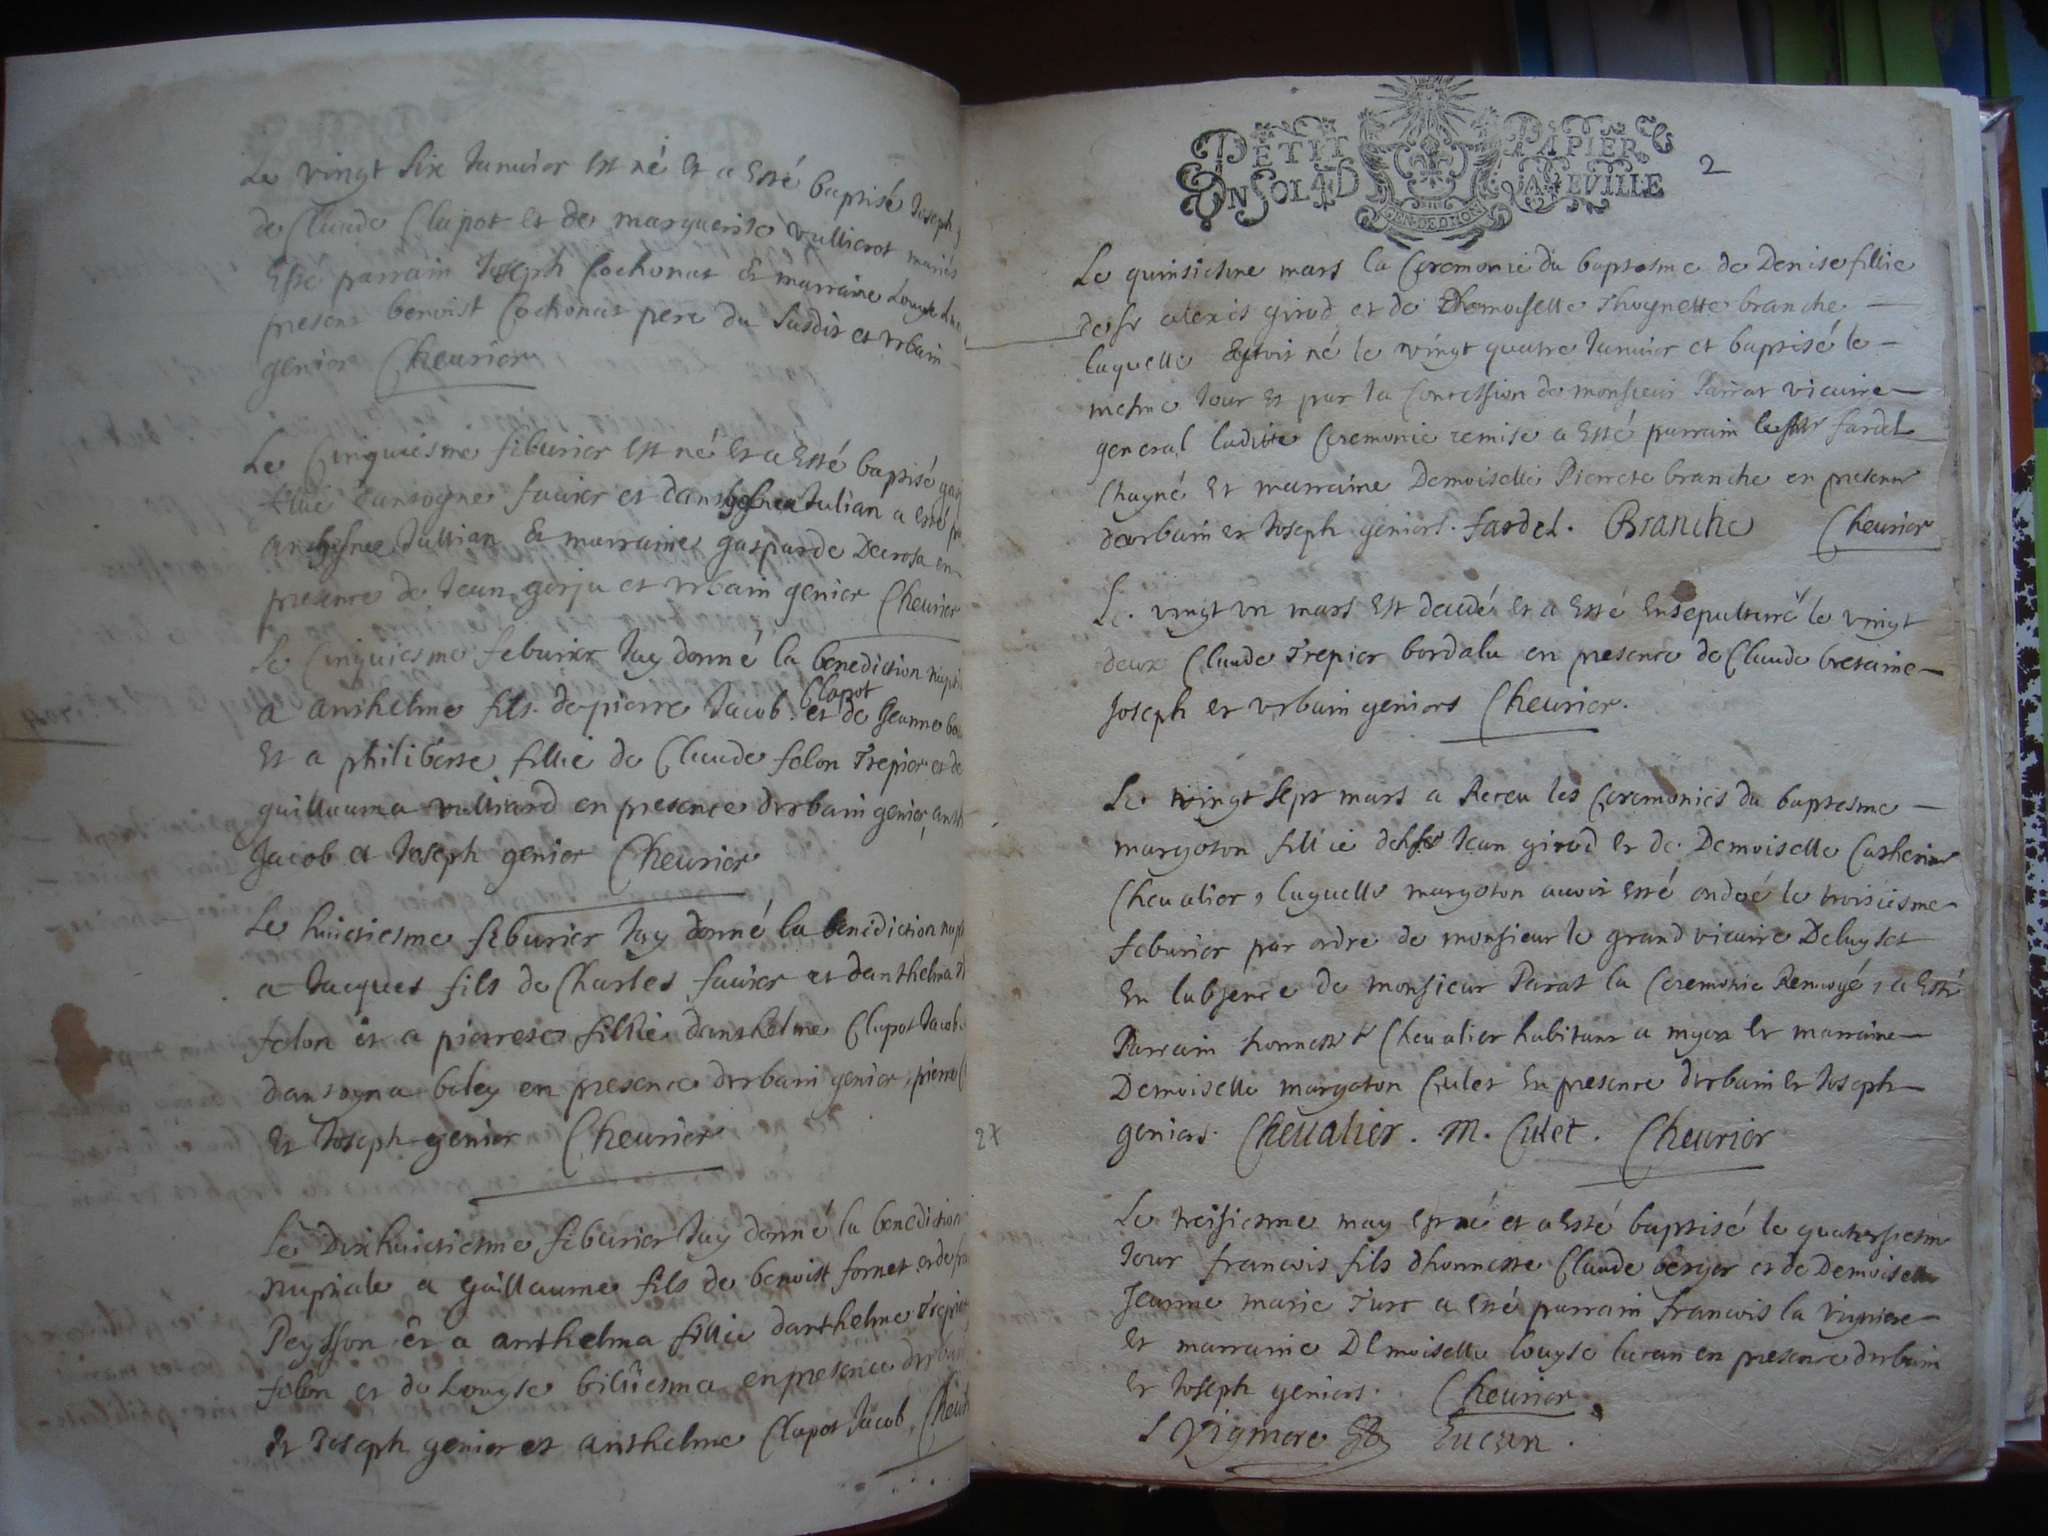 Le vingt six Januier est né et a esté baptisé Joseph
de Claude Clapot et de marguerite vullierot mariés
Esté parrain Joseph Cochonat & marraine Louyse
present benoist Cochonat pere du susdit et vrbain
genier Cheurier
Le Cinquiesme feburier est né et a esté baptisé
fillie dantogne fauier et Julian a esté
Jullian & marraine gasparde Decrosa en
presence de Jean gorju et vrbain genier Cheurier
Le Cinquiesme feburier Jay donné la benediction
Clapot
a anthelme fils de pierre Jacob et de Jeanne
Et a philiberte fillie de Claude folon Trepier et de
guillauma vulliard en presence dvrbain genier,
Jacob et Joseph genier Cheurier
Le huictiesme feburier Jay donné la benediction
a Jacques fils de Charles fauier et danthelma
folon et a pierrete fillie danthelme Clapot Jacob
dantoyna boley en presence dvrbain genier, pierre
Et Joseph genier Cheurier
Le Dixhuictiesme feburier Jay donné la benediction
nuptiale a guillaume fils de benoist fornet et de
Peysson et a anthelma fillie danthelme Trepier
folon et de Louyse en presence dvrbain
et Joseph genier et anthelme Clapot Jacob,
PETIT PAPIER
UN SOL 4 D LA FEUILLE
2
Le quinsiesme mars la Ceremonie du baptesme de Denise fillie
de sr alexis girod et de Dhemoiselle Thoynette branche —
laquelle estoit né le vingt quatre Januier et baptisé le —
mesme Jour et par la Concession de monsieur Parrat vicaire —
general laditte Ceremonie remise a esté parrain fardel
Chayné et marraine Demoiselle Pierrete branche en presence
dvrbain et Joseph geniers. fardel. Branche Cheurier
Le vingt vn mars est decedé et a esté Ensepulturé le vingt
deux Claude Trepier bordala en presence de Claude bretaine —
Joseph et vrbain geniers Cheurier.
Le vingt sept mars a Receu les Ceremonies du baptesme —
margoton fillie de sr Jean girod et de Demoiselle Catherine
Cheualier, laquelle margoton auoit esté ondoyé le troisiesme
feburier par ordre de monsieur le grand vicaire Deluyset
En labsence de monsieur Parat la Ceremonie Renuoyé, a Esté
Parrain honneste Cheualier habitant a myon et marraine —
Demoiselle margoton Culet En presence dvrbain et Joseph
geniers. Cheualier. M. Culet. Cheurier
27
Le treisiesme may est né et a esté baptisé le quatorsiesme
Jour francois fils dhonneste Claude berger et de Demoiselle
Jeanne marie Turc a esté parrain francois la vigniere —
et marraine Demoiselle louyse lucan en presence dvrbain
Et Joseph geniers. Cheurier.
Lucan.